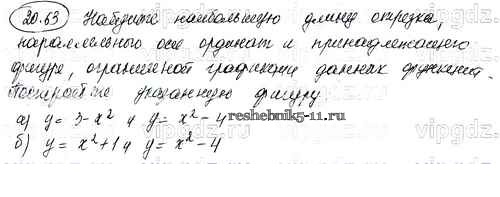 20.63 Найдите наибольшую длину отрезка,
параллельного оси ординат и принадлежащего
фигуре, ограниченной графиками данных функций.
Постройте указанную фигуру
а) y = 3-x² и y = x² - 4
reshebnik5-11.ru
б) y = x² + 1 и y = x² - 4
vipgdz.
vipgdz.
vipgdz.